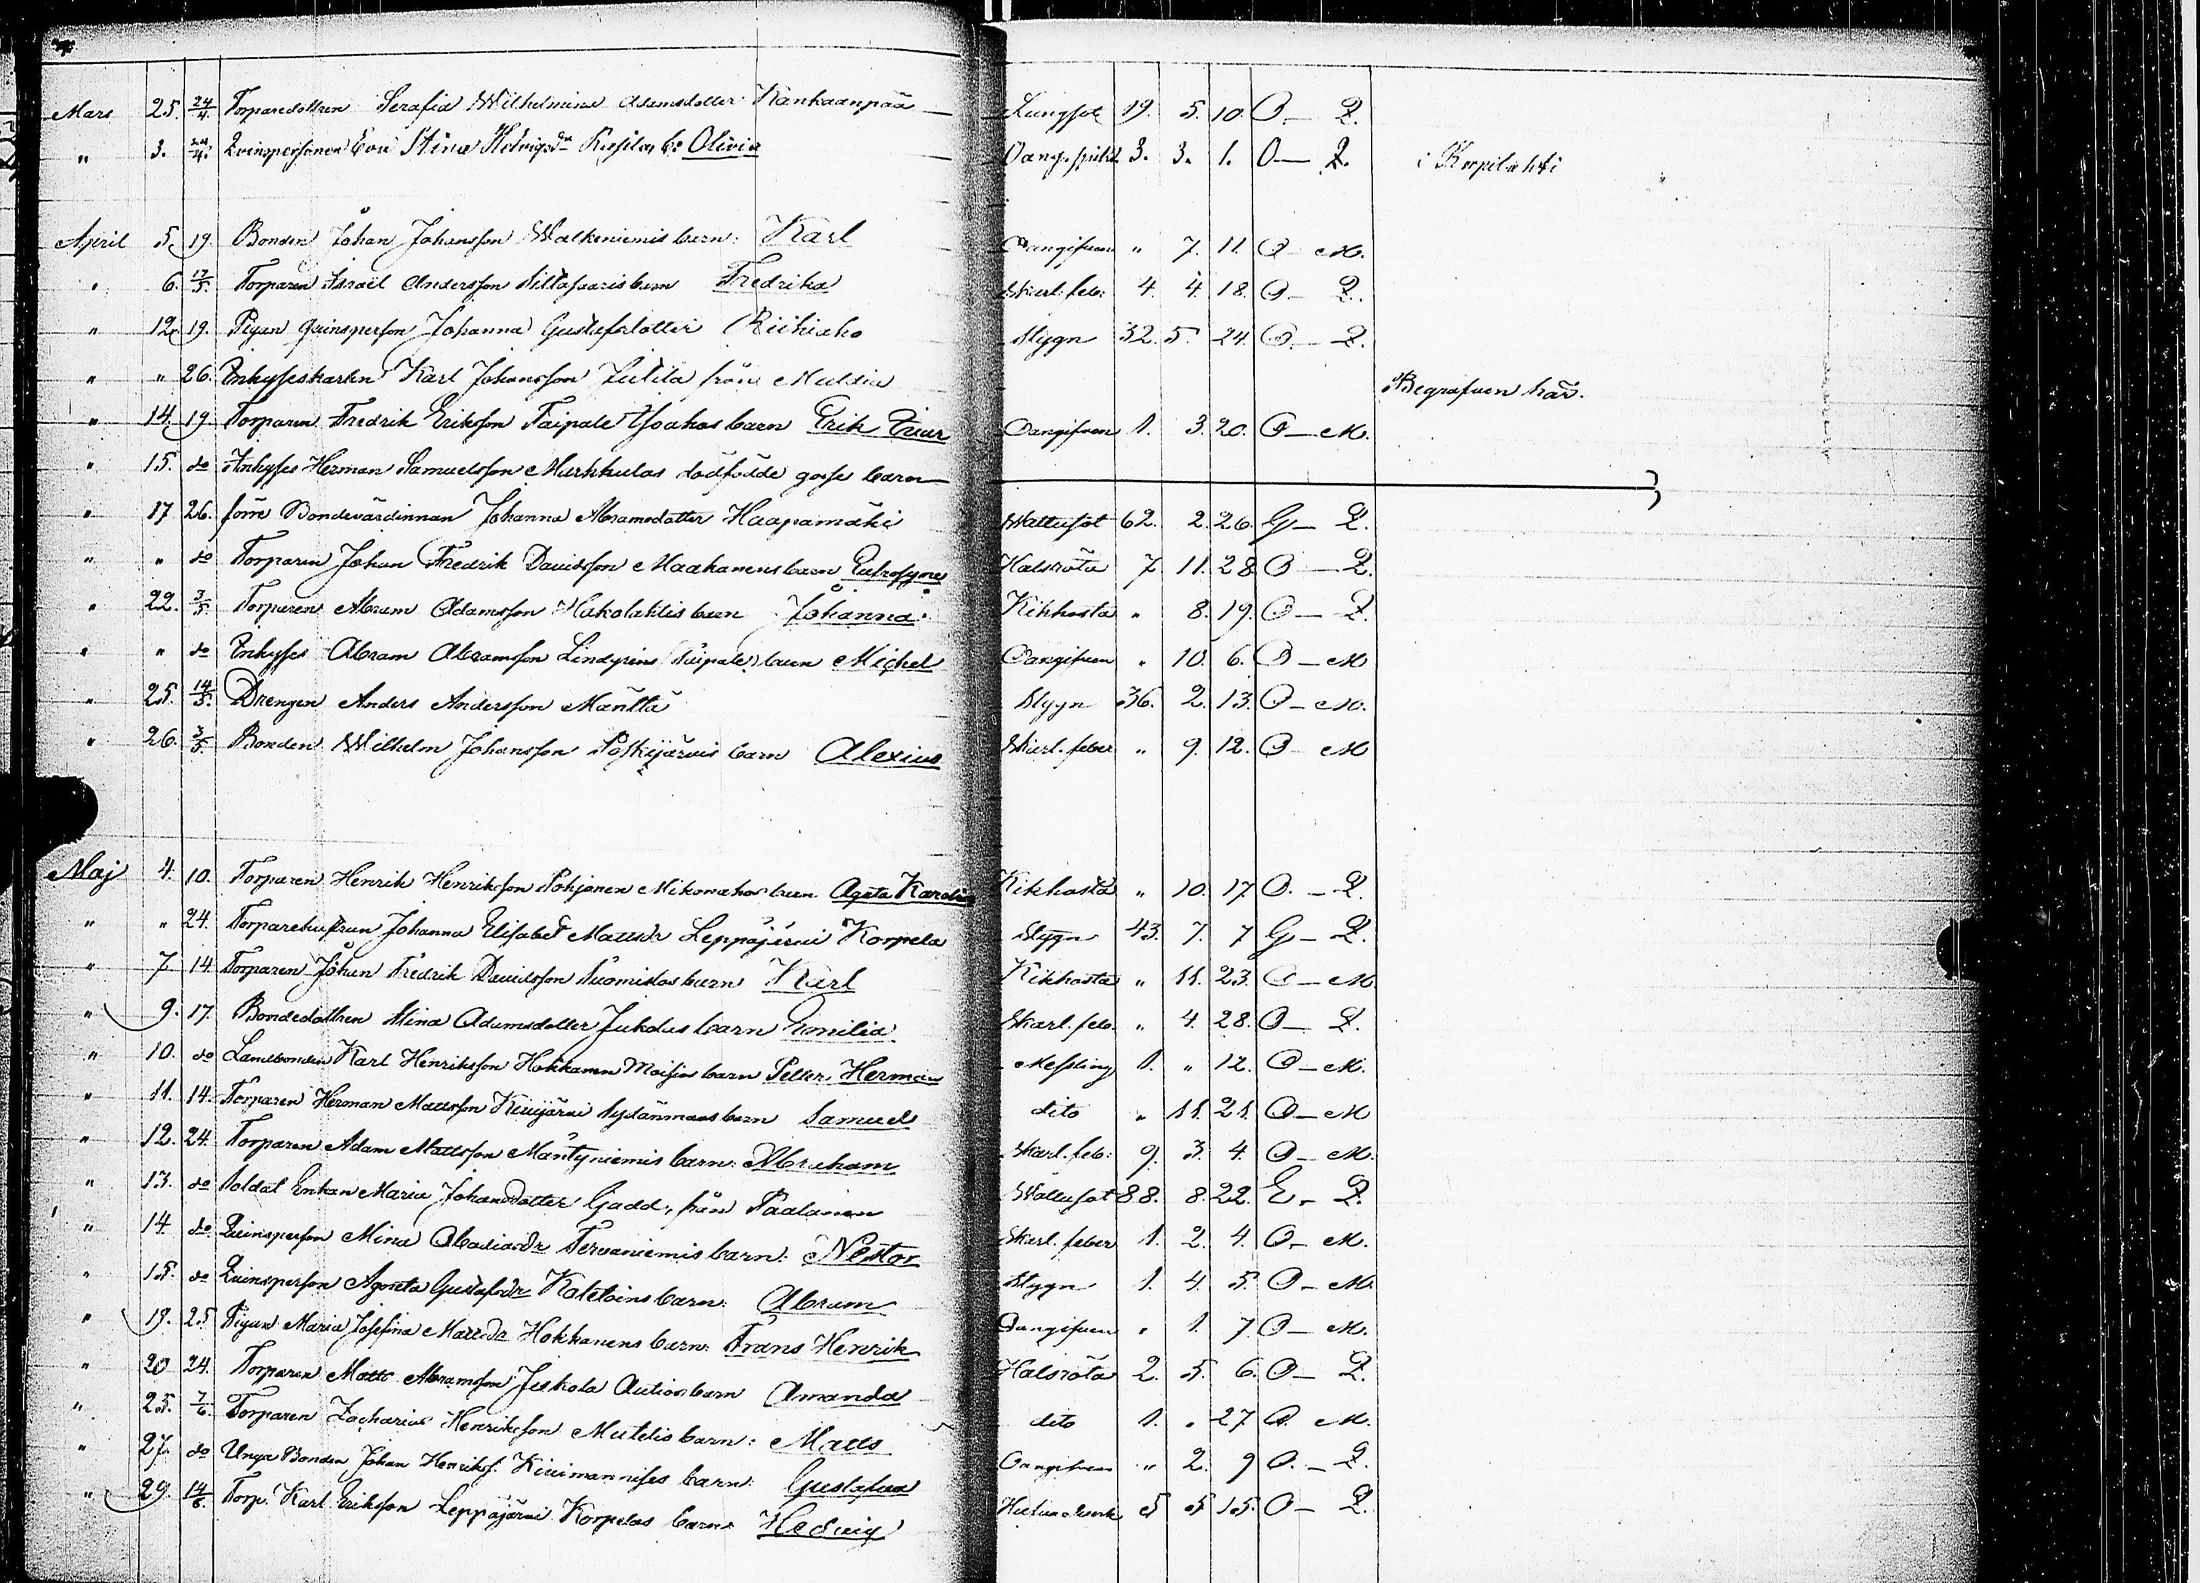 Mars 25. 24/4. Torparedottren Serafia Wilhelmina Adamsdotter Kankaanpää Lungsot 19. 5. 10. O. — Q.
" 3. 24/4. Qvinspersonen Eva Stina Hedvigsdr barn Olivia Oangifvet 3. 3. 1. O — Q. i Korpilahti
April 5. 19. Bonden Johan Johansson Walkeniemis barn: Karl Oangifven " 7. 11. O — M.
" 6. 17/5. Torparen Israël Andersson Siltasaaris barn Fredrika Skarl. feb: 4. 4. 18. O — Q.
" 12. 19. Pigan qvinsperson Johanna Gustafsdotter Riihiaho Stygn 32. 5. 24. O. — Q.
" " 26. Inhyseskarlen Karl Johansson Juhila från Multia Begrafven här.
" 14. 19. Torparen Fredrik Eriksson Taipale Ysoahos barn Erik Einar Oangifven 1. 3. 20. O — M.
" 15. do Inhyses Herman Samuelsson Murkkulas dödfödde gosse barn
" 17 26. förre Bondevärdinnan Johanna Abramsdotter Haapamäki Wattusot 62. 2. 26. G — Q.
" " do Torparen Johan Fredrik Davidsson Maahanens barn Eufrosyne Halsröta 7 11. 28. O — Q.
" 22. 3/5. Torparen Abram Adamsson Hakolahtis barn Johanna Kikhosta " 8. 19. O — Q.
" " do Inhyses Abram Abramsson Lindgrens (Taipale) barn Michel Oangifven " 10. 6. O — M
" 25. 14/5. Drengen Anders Andersson Mänttä Stygn 36. 2. 13. O — M.
" 26. 3/5. Bonden Wilhelm Johansson Poskijärvis barn Alexius Skarl. feber " 9. 12. O — M
Maj 4. 10. Torparen Henrik Henriksson Pohjanen Mikonahos barn Agata Karolina Kikhosta " 10. 17. O. — Q.
" " 24. Torparehustrun Johanna Elisabet Mattsdr Leppäjärvi Korpela Stygn 43. 7. 7 G — Q.
" 7. 14. Torparen Johan Fredrik Davidsson Tuomistos barn Karl Kikhosta " 11. 23. O — M
" 9. 17. Bondedottren Mina Adamsdotter Juholas barn Emilia Skarl. feb. " 4. 28. O — Q.
" 10. do Landbonden Karl Henriksson Hokkanen Moisio barn Petter Herman Messling 1. " 12. O — M.
" 11. 14. Torparen Herman Mattsson Kivijärvi Sydänmaas barn Samuel dito " 11. 21. O — M
" 12. 24. Torparen Adam Mattsson Mäntyniemis barn: Abraham Skarl. feb: 9. 3. 4. O — M.
" 13. do Soldat Enkan Maria Johansdotter Gadd, från Paalanen Wattusot 88. 8. 22. E — Q.
" 14. do Qvinsperson Mina Abadiasdr Tervaniemis barn: Nestor Skarl. feber 1. 2. 4. O — M.
" 15. do Qvinsperson Agneta Gustafsdr Katelains barn: Abram Stygn 1. 4. 5. O — M.
" 19. 25 Pigan Maria Josefina Mattsdr Hokkanens barn: Frans Henrik Oangifven " 1. 7. O — M.
" 20 24. Torparen Matts Abramsson Juhola Autios barn Amanda Halsröta 2. 5. 6. O — Q.
" 25. 7/6. Torparen Zacharias Henriksson Mutilis barn: Matts dito 1. " 27 O. M.
" 27. do Unga Bonden Johan Henriksf. Kiiimannises barn: Gustafva Oangifven " 2. 9 O. — Q.
" 29. 14/6. Torp. Karl Eriksson Leppäjärvi Korpelas barn: Hedvig 5 5 15. O — Q.